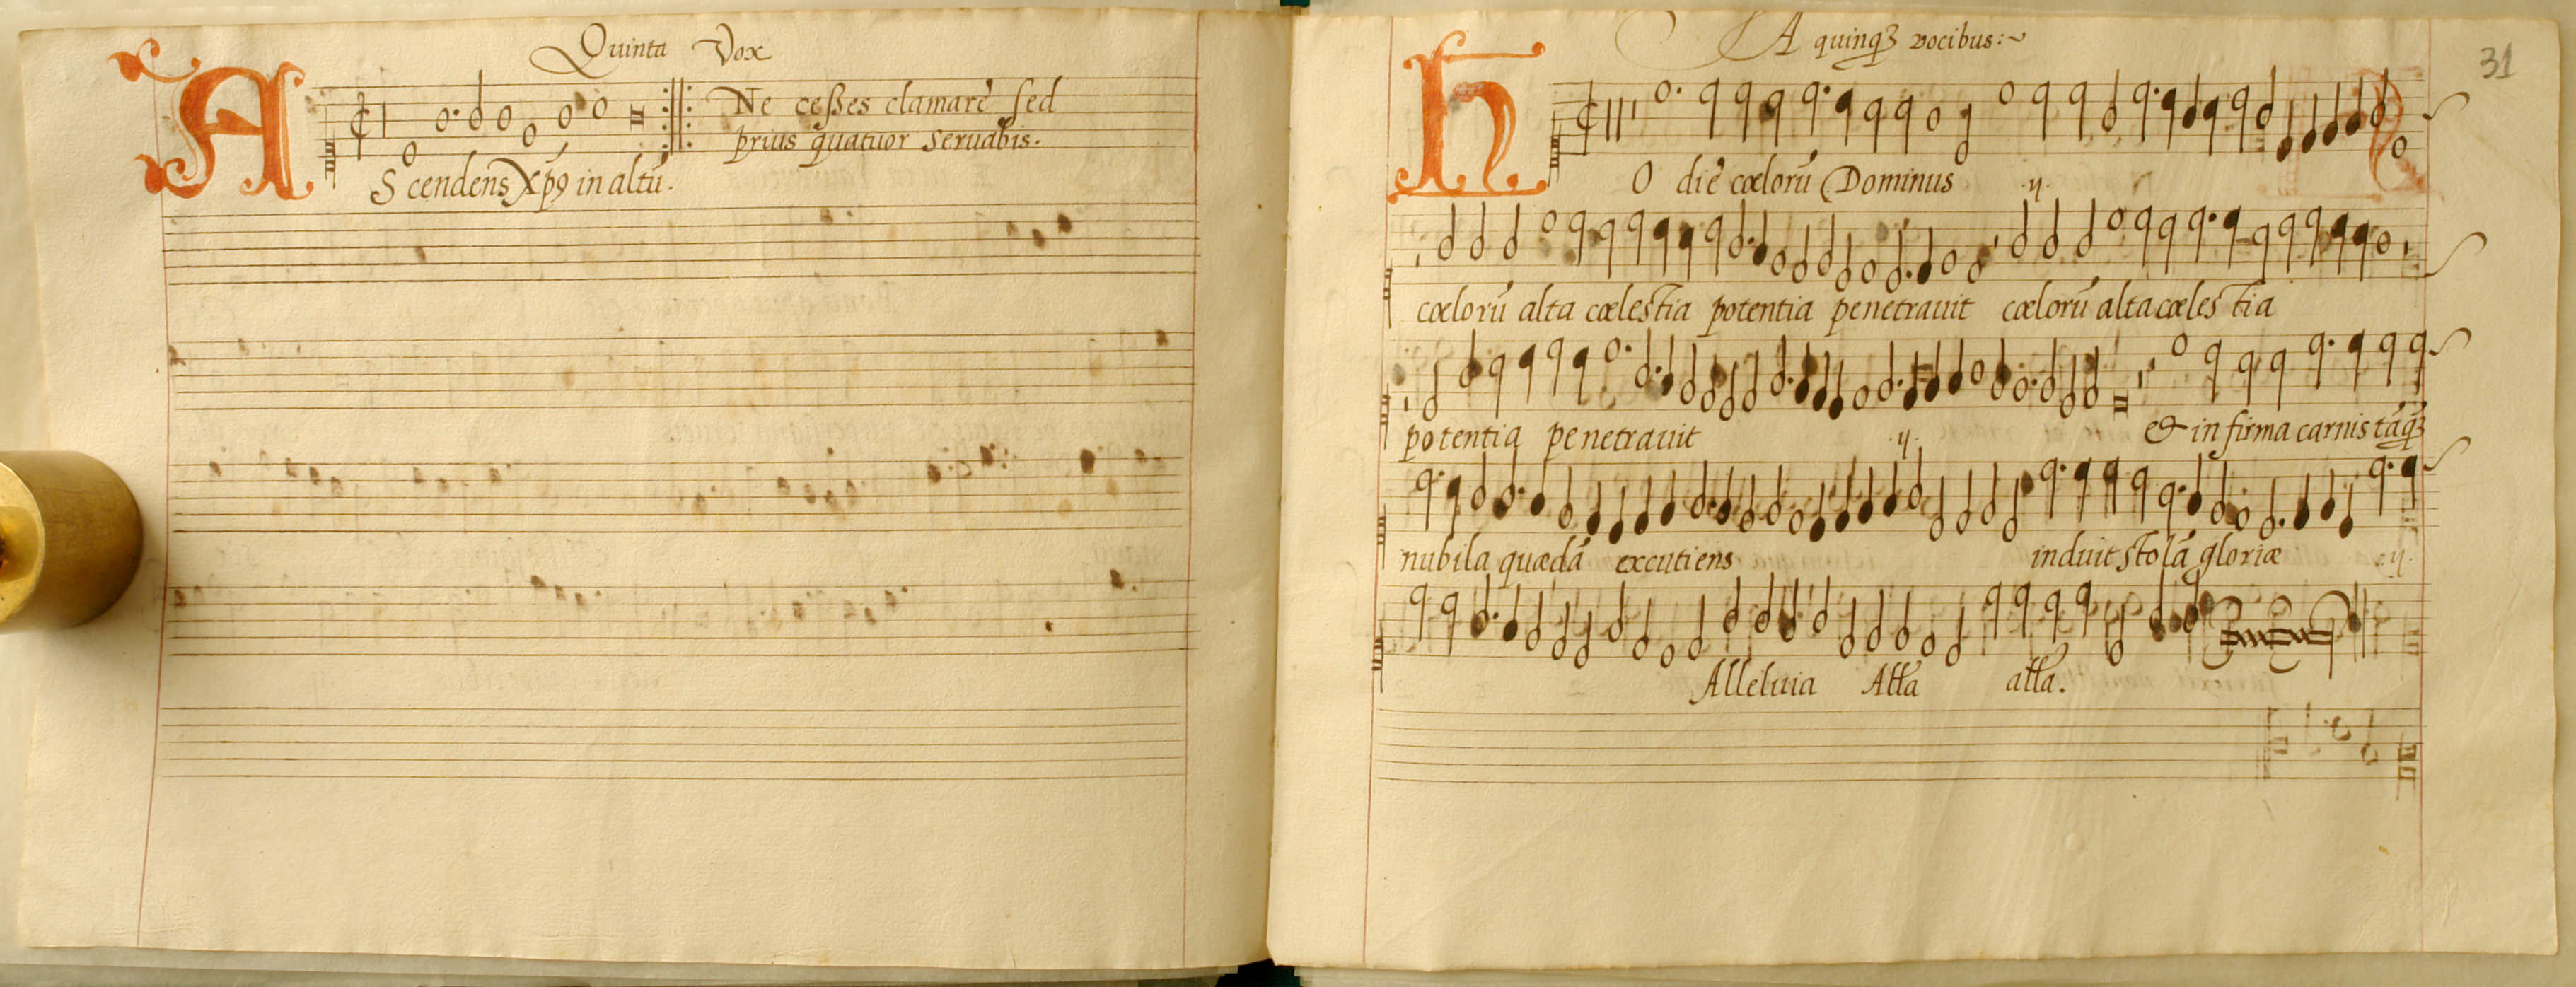 Quinta Vox
Ne ceßes clamarē sed
prius quatuor seruabis.
AScendens Xp̄ꝯ in altū.
A quinqꝫ vocibus:~
31
HOdiē cœlorū Dominus ij.
cœlorū alta cœlestia potentia penetrauit cœlorū alta cœlestia
potentia penetrauit ij. & infirma carnis tāqꝫ
nubila quædā excutiens induit stolā gloriæ ij.
Alleluia Alła ałła.